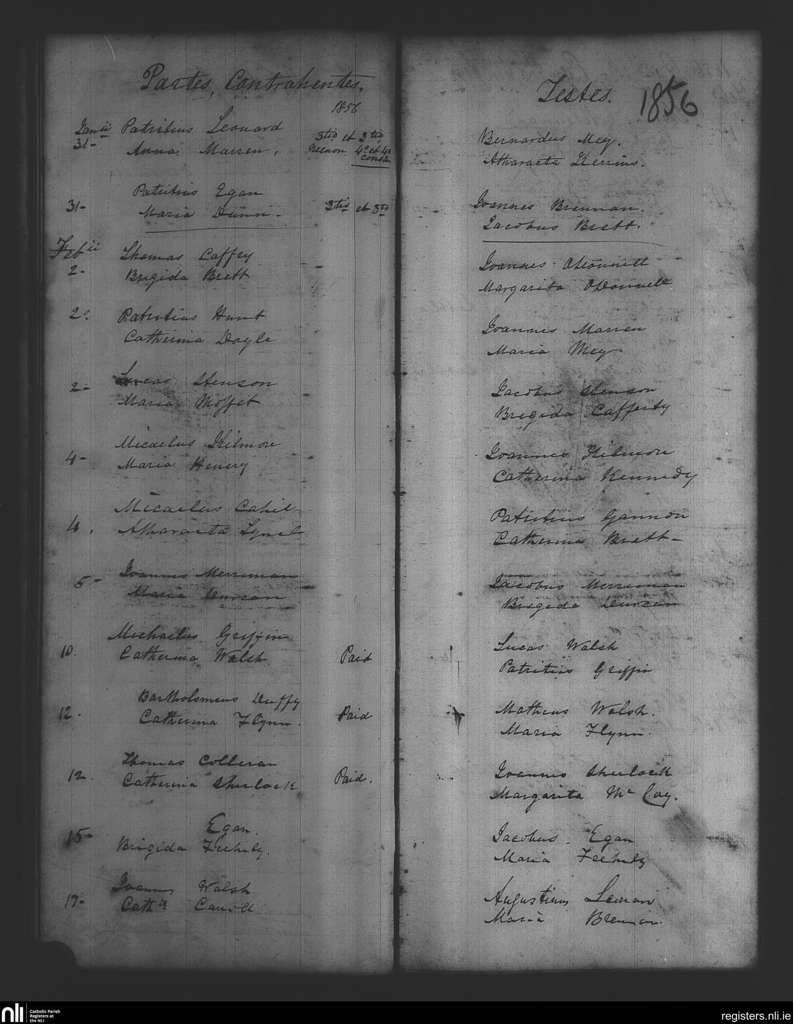 Partes, Contrahentes,
1856
Testes. 1856
Janii Patritius Leonard 3tio et 3tio Bernardus Mey.
31- Anna Marren, necnon 4o et 4o consang. Atharacta
31- Patritius Egan Joannes Brennan.
Maria Dunn- 3tio et 3tio Jacobus Brett.
Febii Thomas Caffry Joannes ODonnell
2- Brigida Brett Margarita ODonnell
2o Patritius Hunt Joannes Marren
Catherina Doyle Maria Mey
2- Lucas Henson Jacobus Henson
Maria Moffet Brigida Cafferty
4- Micaelus Kilmore Joannes Kilmore
Maria Henery Catherina Kennedy
4. Micaelus Cahil Patritius Gannon
Atharacta Lynch Catherina Brett-
5- Joannes Merriman Jacobus Merriman
Maria Durcan Brigida Durcan
10. Michaelus Griffin Lucas Walsh
Catherina Walsh Paid Patritius Griffin
12. Bartholomeus Duffy Matheus Walsh.
Catherina Flynn. Paid Maria Flynn.
12. Thomas Colleran Joannes Sherlock
Catherina Sherlock Paid. Margarita Mc Coy.
15- Egan. Jacobus Egan
Brigida Feehely. Maria Feehely
17- Joannes Walsh Augustinus
Cathna Maria Brennan
nli Catholic Parish
Registers at
the NLI
registers.nli.ie